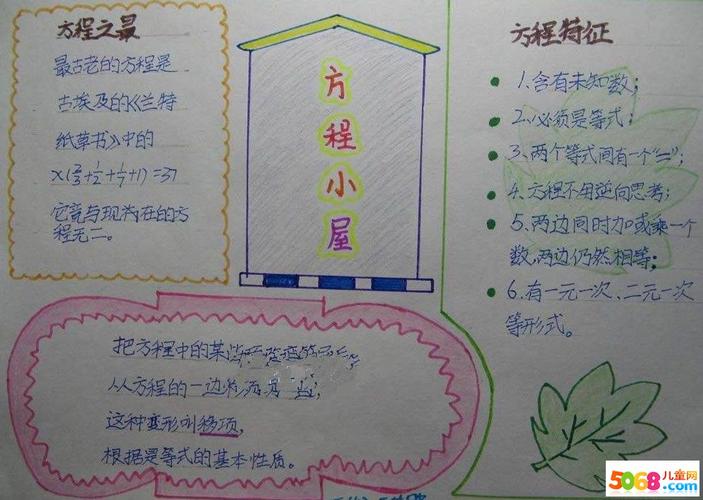 方程之最
最古老的方程是
古埃及的《兰特
纸草书》中的
x(2/3+1/2+1/7+1)=37
它竟与现在的方
程无二。
方程小屋
方程特征
1、含有未知数;
2、必须是等式;
3、两个等式间有一个“=”;
4、方程不用逆向思考;
5、两边同时加或乘一个
数,两边仍然相等;
6、有一元一次、二元一次
等形式。
把方程中的某
从方程的一边
这种变形叫移项,
根据是等式的基本性质。
5068儿童网
www.5068.com